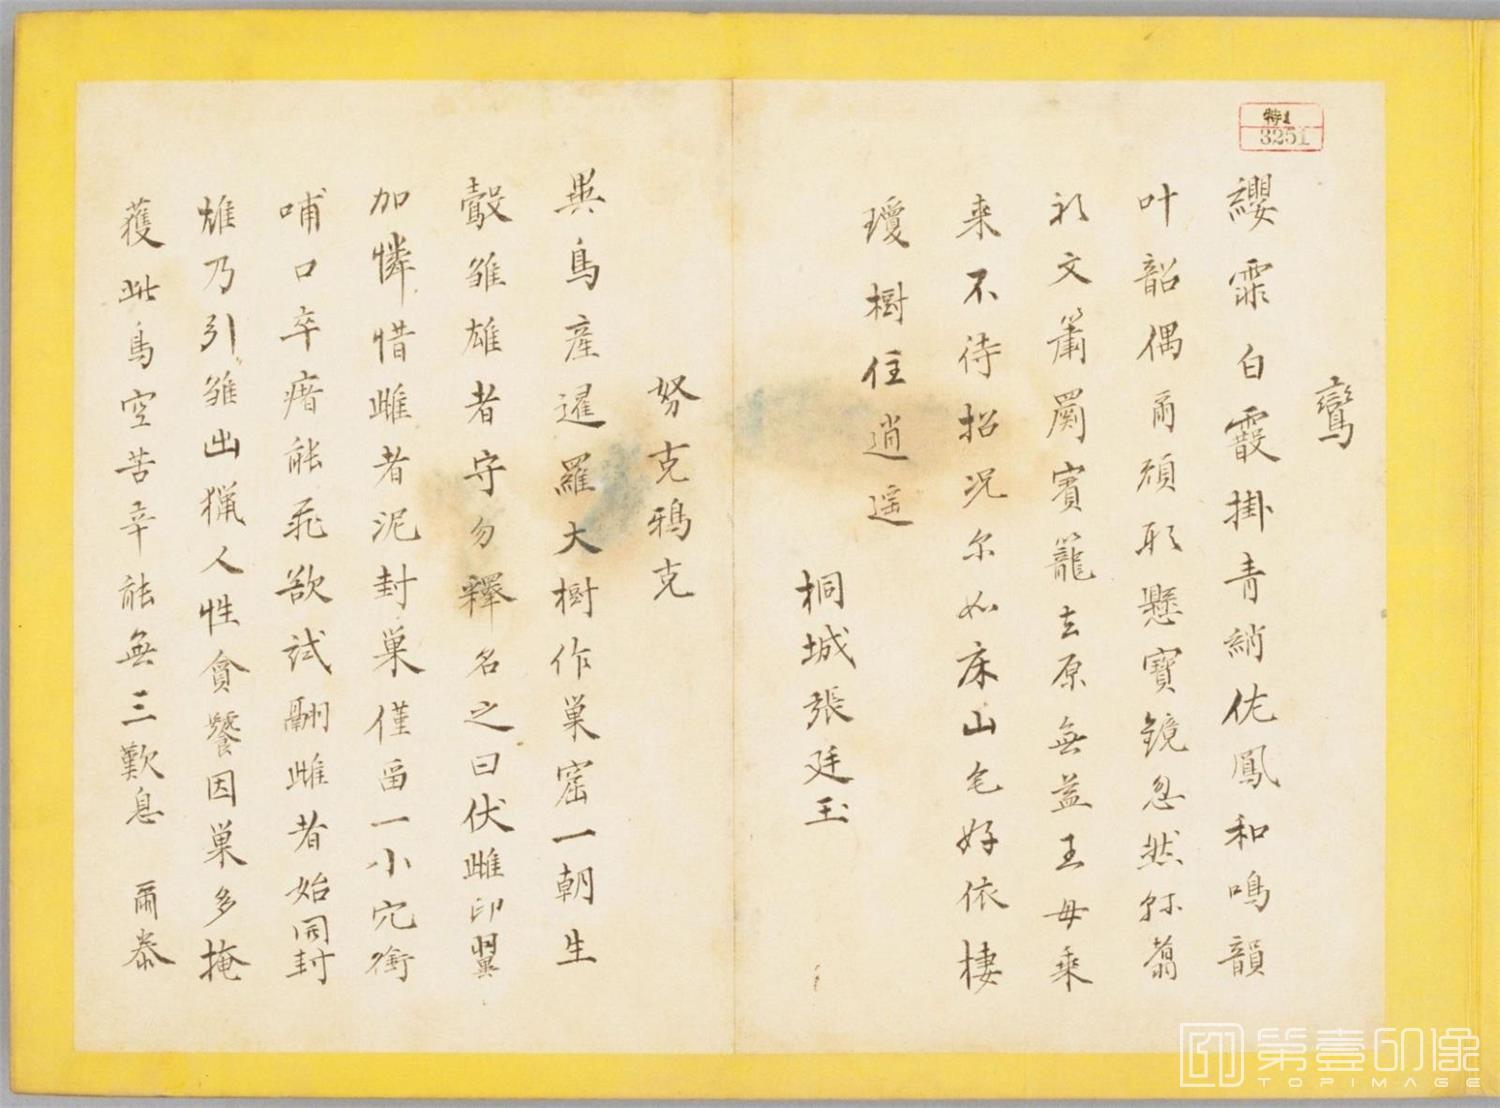 特1
3251
鸞
纓霏白霞掛青綃仛鳳和鳴韻
叶韶偶爾頎形懸寶鏡忽然鉩翦
礽文簫罽賓籠去原無益王母乘
来不待招况尔如床山乞好依棲
瓊樹任逍遥
桐城張廷玉
努克鴉克
異鳥產暹羅大樹作巢窟一朝生
鷇雏雄者守勿釋名之曰伏雌卵翼
加憐惜雌者泥封巢僅畱一小穴銜
哺口卒瘏能飛欲試翮雌者始開封
雄乃引雏出猟人性貪饕因巢多掩
獲此鳥空苦辛能無三歎息 爾泰
第壹印像
TOPIMAGE